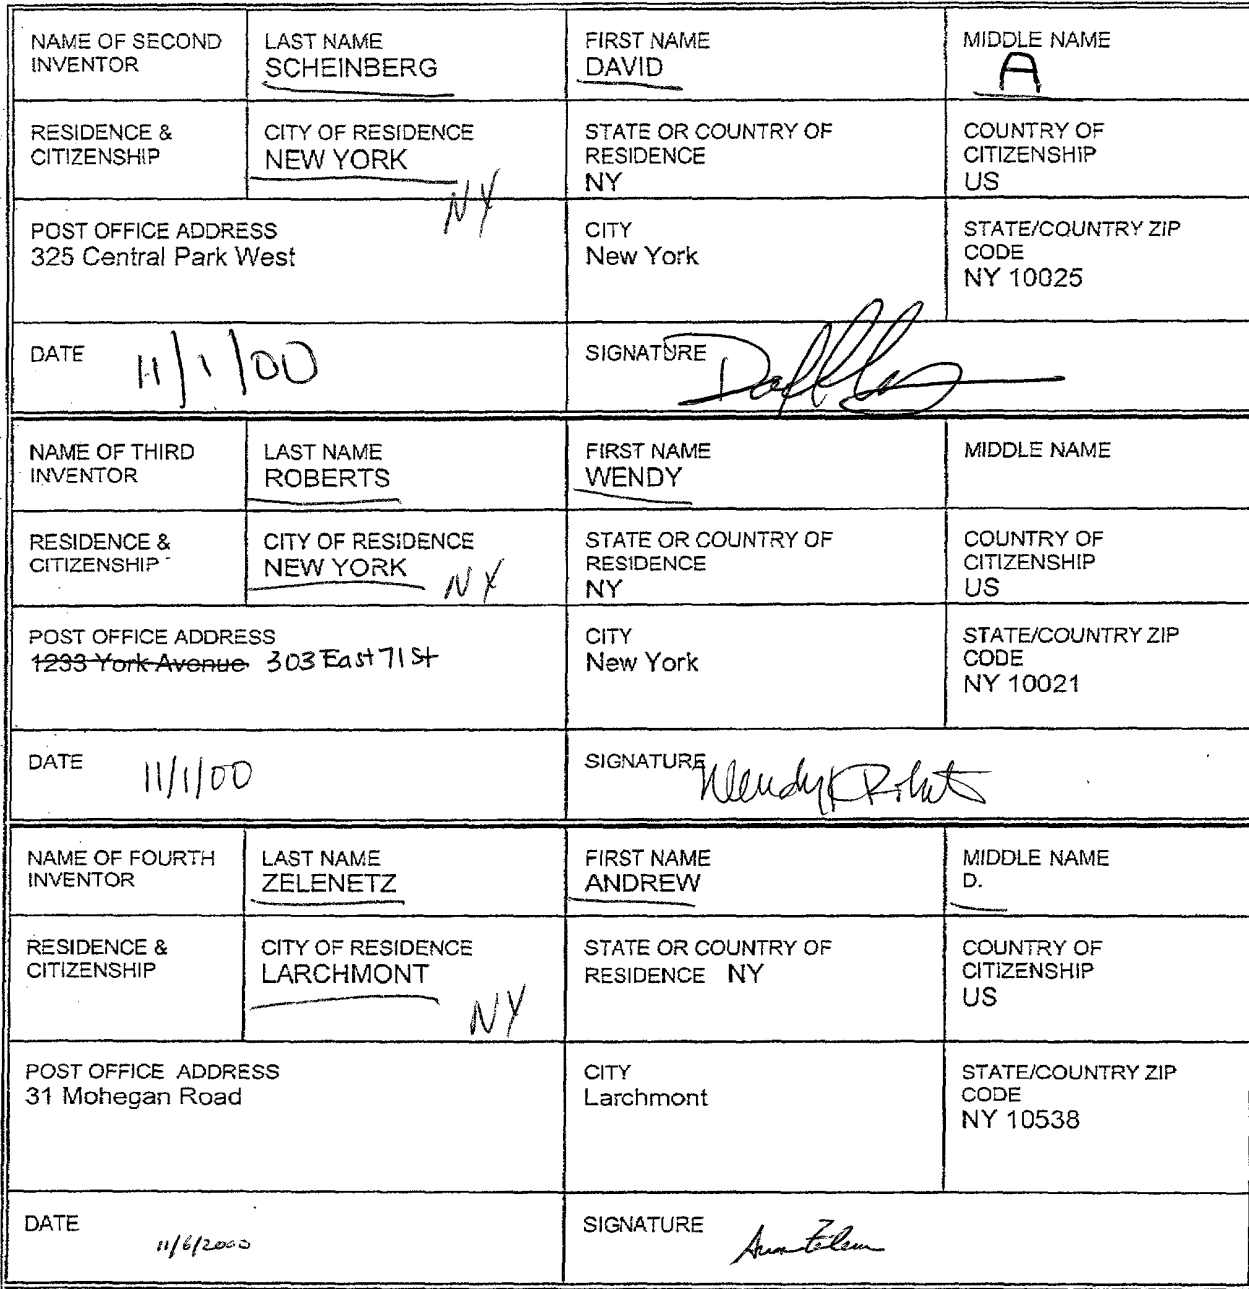 NAME OF SECOND INVENTOR
LAST NAME
SCHEINBERG
FIRST NAME
DAVID
MIDDLE NAME
A
RESIDENCE & CITIZENSHIP
CITY OF RESIDENCE
NEW YORK
NY
STATE OR COUNTRY OF RESIDENCE
NY
COUNTRY OF CITIZENSHIP
US
POST OFFICE ADDRESS
325 Central Park West
CITY
New York
STATE/COUNTRY ZIP CODE
NY 10025
DATE 11/1/00
SIGNATURE
NAME OF THIRD INVENTOR
LAST NAME
ROBERTS
FIRST NAME
WENDY
MIDDLE NAME
RESIDENCE & CITIZENSHIP
CITY OF RESIDENCE
NEW YORK
NY
STATE OR COUNTRY OF RESIDENCE
NY
COUNTRY OF CITIZENSHIP
US
POST OFFICE ADDRESS
1233 York Avenue 303 East 71 St
CITY
New York
STATE/COUNTRY ZIP CODE
NY 10021
DATE 11/1/00
SIGNATURE Wendy
NAME OF FOURTH INVENTOR
LAST NAME
ZELENETZ
FIRST NAME
ANDREW
MIDDLE NAME
D.
RESIDENCE & CITIZENSHIP
CITY OF RESIDENCE
LARCHMONT
NY
STATE OR COUNTRY OF RESIDENCE NY
COUNTRY OF CITIZENSHIP
US
POST OFFICE ADDRESS
31 Mohegan Road
CITY
Larchmont
STATE/COUNTRY ZIP CODE
NY 10538
DATE 11/6/2000
SIGNATURE